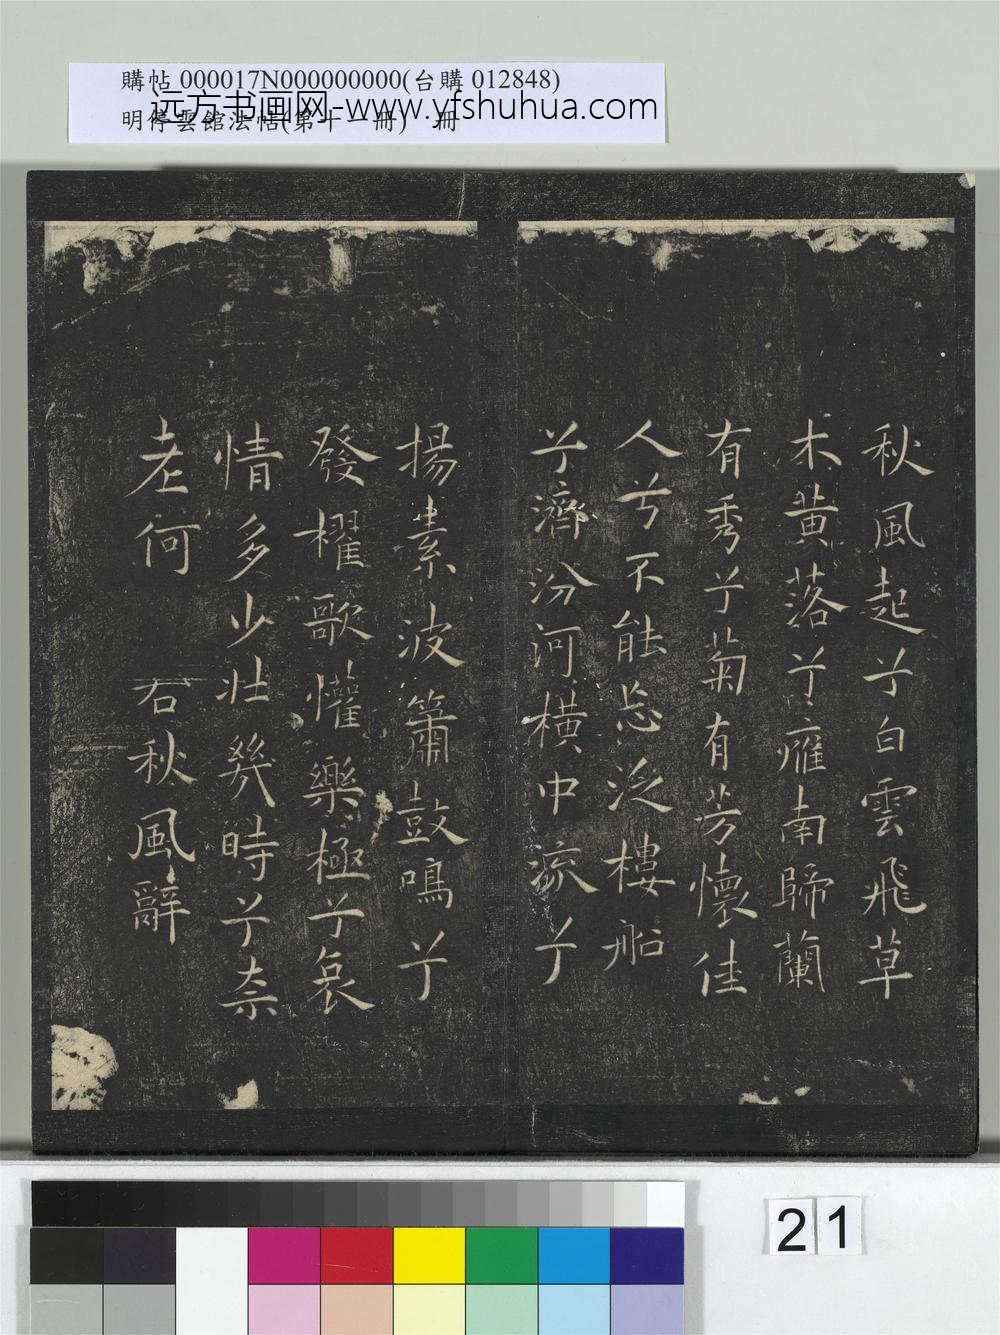 購帖 000017N000000000(台購 012848)
远方书画网-www.yfshuhua.com
明停雲館法帖(第十一冊) 冊
秋風起兮白雲飛草
木黃落兮鴈南歸蘭
有秀兮菊有芳懷佳
人兮不能忘泛樓船
兮濟汾河橫中流兮
揚素波簫鼓鳴兮
發櫂歌懽樂極兮哀
情多少壯幾時兮奈
老何 右秋風辭
21